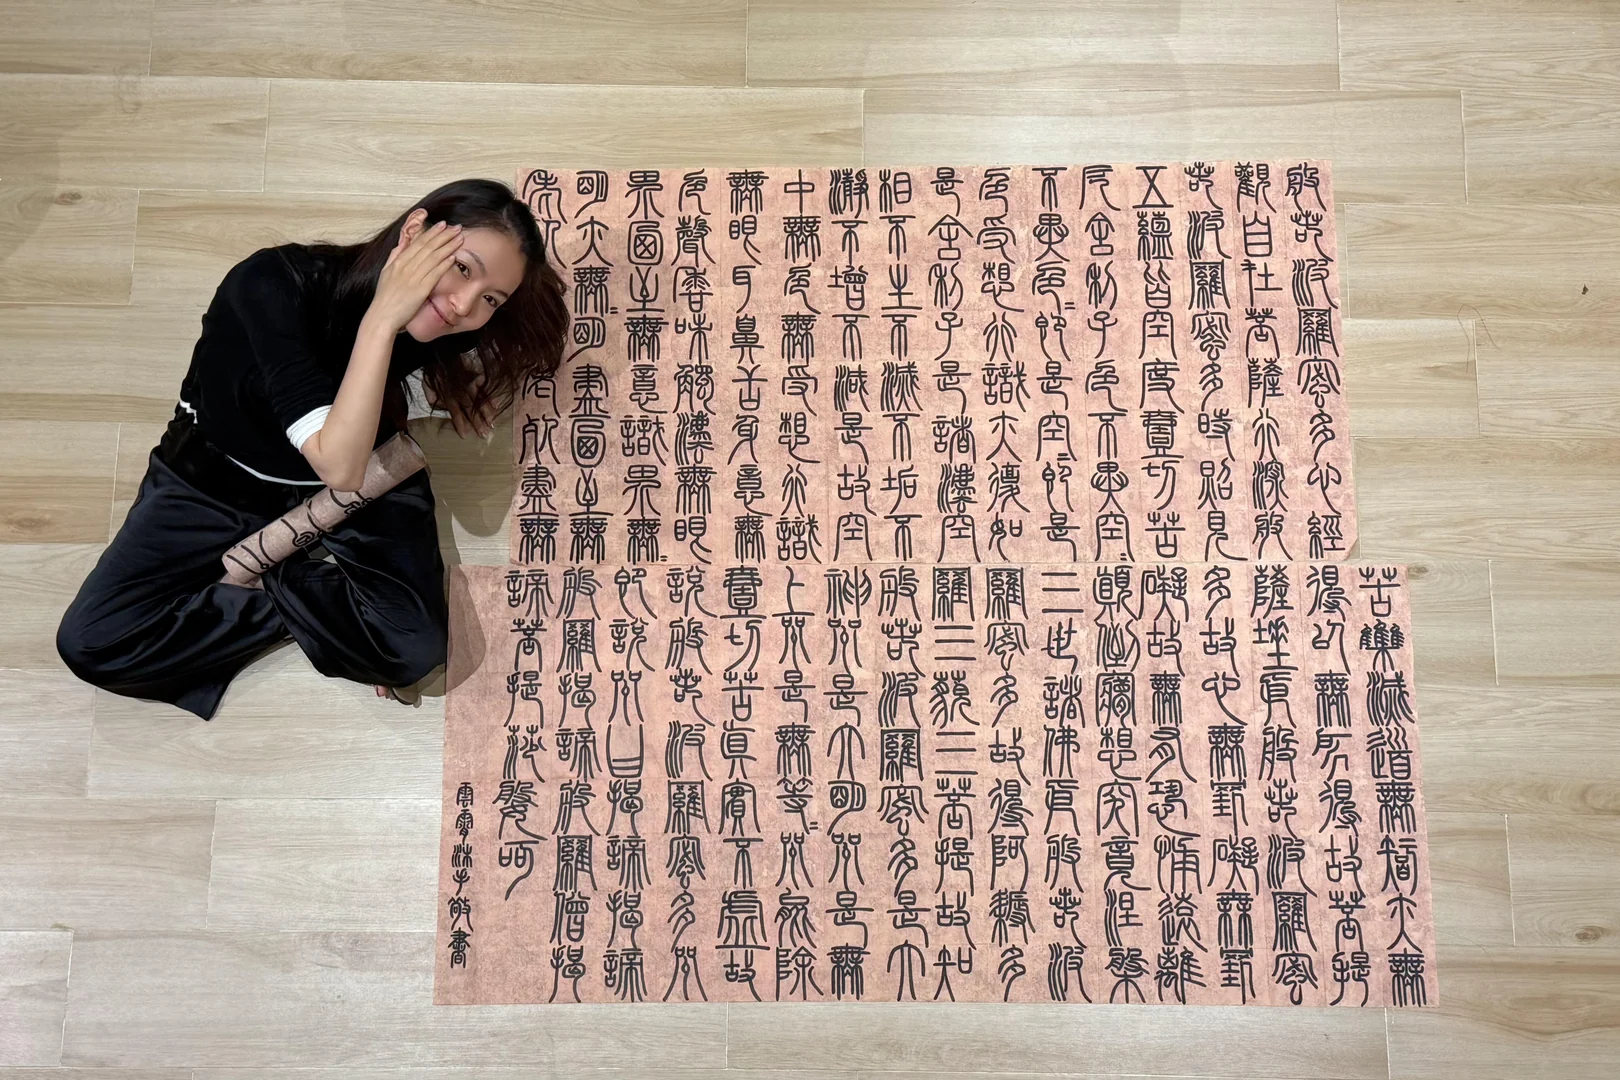 般若波羅蜜多心經
觀自在菩薩行深般
若波羅蜜多時照見
五蘊皆空度壹切苦
厄舍利子色不異空〻
不異色〻即是空〻即是
色受想行識亦復如
是舍利子是諸灋空
相不生不滅不垢不
瀞不增不減是故空
中無色無受想行識
無眼耳鼻舌身意無
色聲香味觸灋無眼
界迺至無意識界無〻
明亦無〻明盡迺至無
老死老死盡無
苦集滅道無智亦無
得以無所得故菩提
薩埵依般若波羅蜜
多故心無罣礙無罣
礙故無有恐怖遠離
顛倒夢想究竟涅槃
三世諸佛依般若波
羅蜜多故得阿耨多
羅三藐三菩提故知
般若波羅蜜多是大
神咒是大明咒是無
上咒是無等〻咒能除
壹切苦真實不虛故
說般若波羅蜜多咒
即說咒曰揭諦揭諦
般羅揭諦般羅僧揭
諦菩提莎婆訶
雲霄沐手敬書